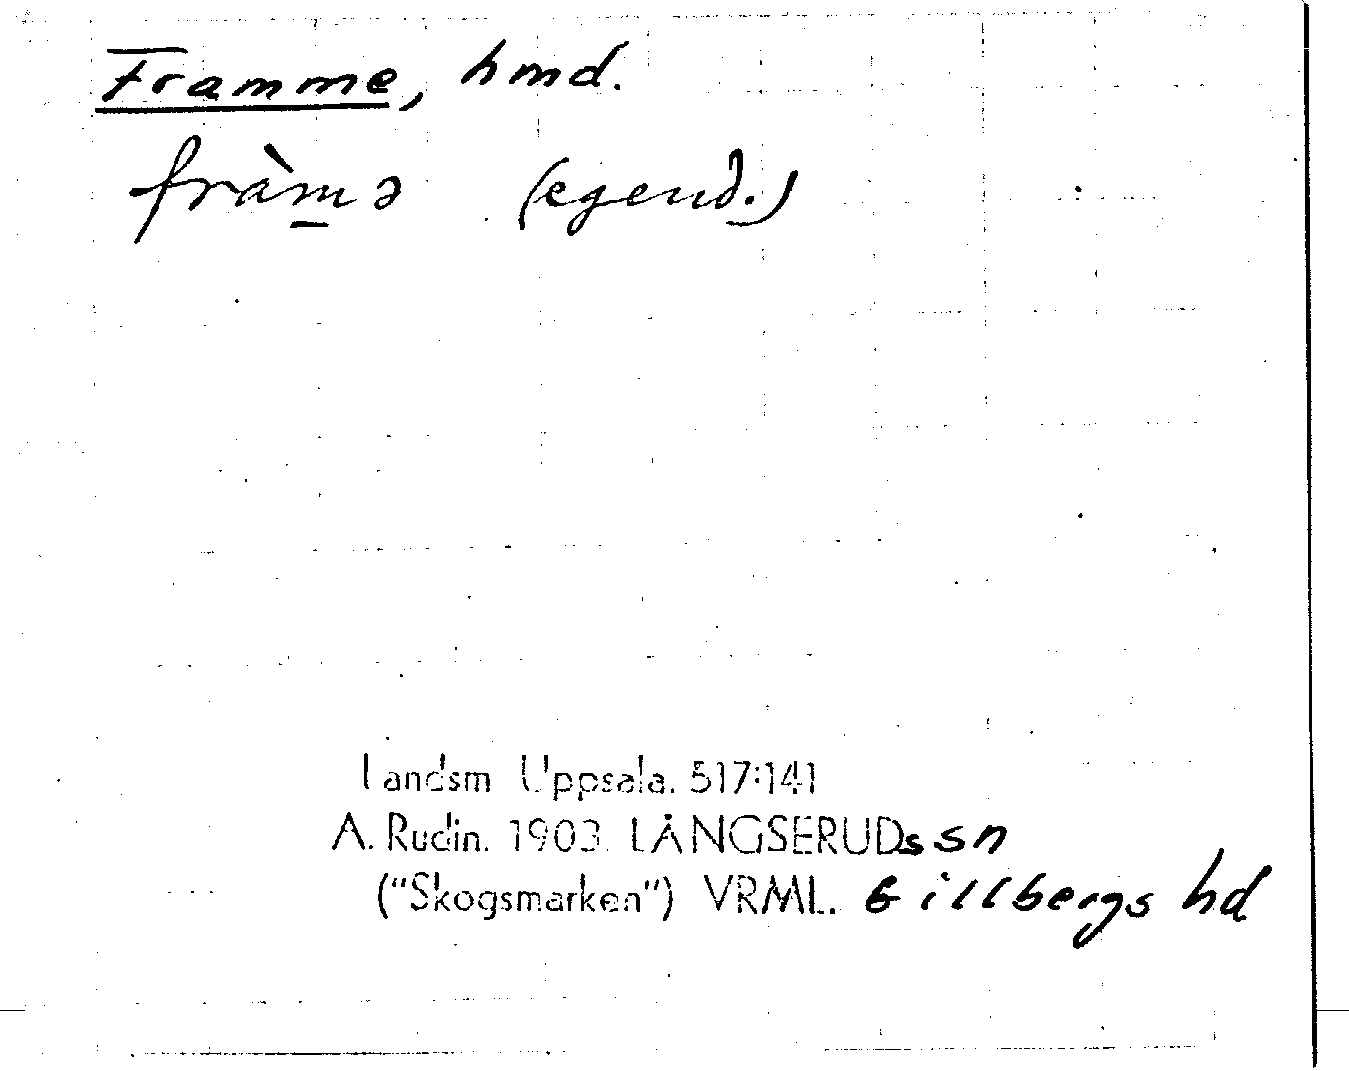 Framme, hmd.
fràm̱ə (egend.)
Landsm Uppsala. 517:141
A. Rudin. 1903. LÅNGSERUDs sn
("Skogsmarken") VRML. Gillbergs hd